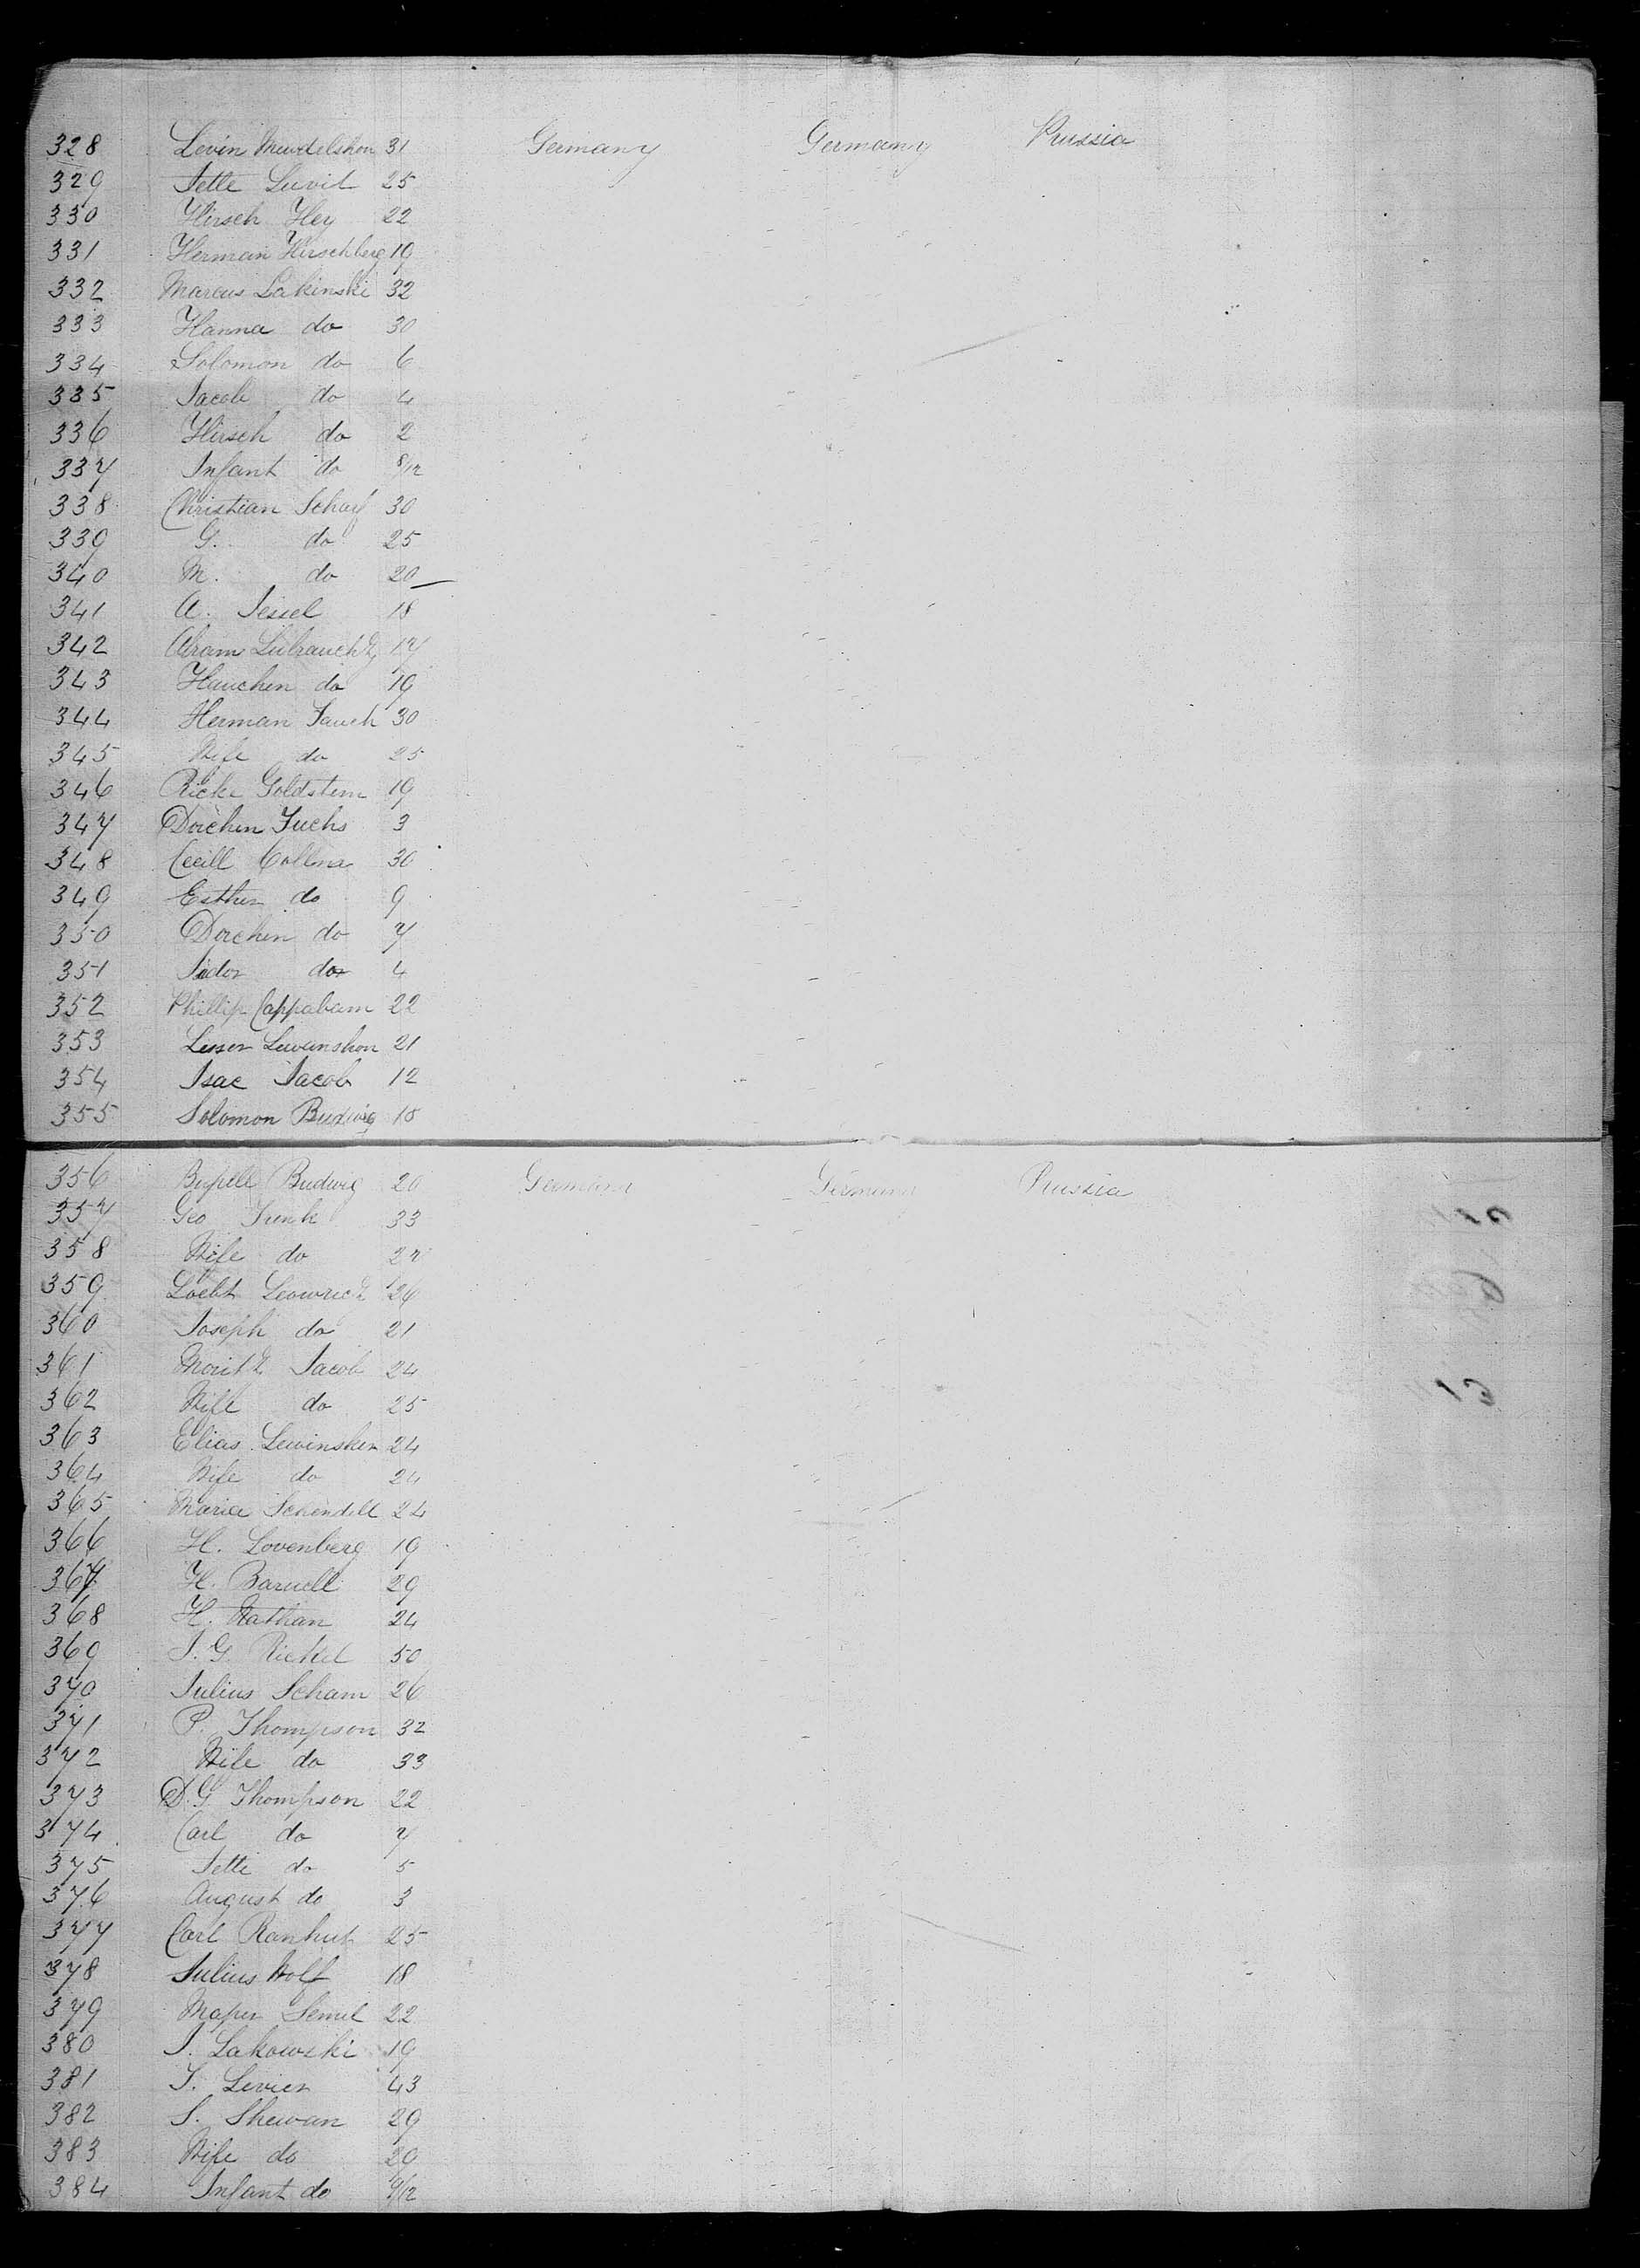 328 Levin Mendelshon 31 Germany Germany Prussia
329 Jette Luvit 25
330 Hirsch Hey 22
331 Herman Hirschberg 19
332 Marcus Lakinski 32
333 Hanna do 30
334 Solomon do 6
335 Jacob do 4
336 Hirsch do 2
337 Infant do 8/12
338 Christian Scharf 30
339 G. do 25
340 M. do 20
341 A. Jessel 18
342 Abram 17
343 Hanchen do 19
344 Herman Jauch 30
345 Wife do 25
346 Ricke Goldstein 19
347 Dorchen Fuchs 3
348 Cecill Collma 30
349 Esther do 9
350 Dorchen do 7
351 Isidor do 4
352 Phillip Cappabam 22
353 Lesser Lewenshon 21
354 Isac Jacob 12
355 Solomon Budwig 18
356 Budwig 20 Germany Germany Prussia
357 Geo Funk 33
358 Wife do
359 Loebt 26
360 Joseph do 21
361 Moritz Jacob 24
362 Wife do 25
363 Elias Lewinsken 24
364 Wife do 24
365 Maria Schendell 24
366 H. Lovenberg 19
367 H. Baruell 29
368 H. Nathan 24
369 J. G. Rickel 50
370 Julius Scham 26
371 P. Thompson 32
372 Wife do 33
373 D. G. Thompson 22
374 Carl do 7
375 Jette do 5
376 August do 3
377 Carl Ranhut 25
378 Julius Wolf 18
379 Semel 22
380 J. Lakowski 19
381 J. Levien 43
382 S. Shewan 29
383 Wife do 20
384 Infant do 9/12